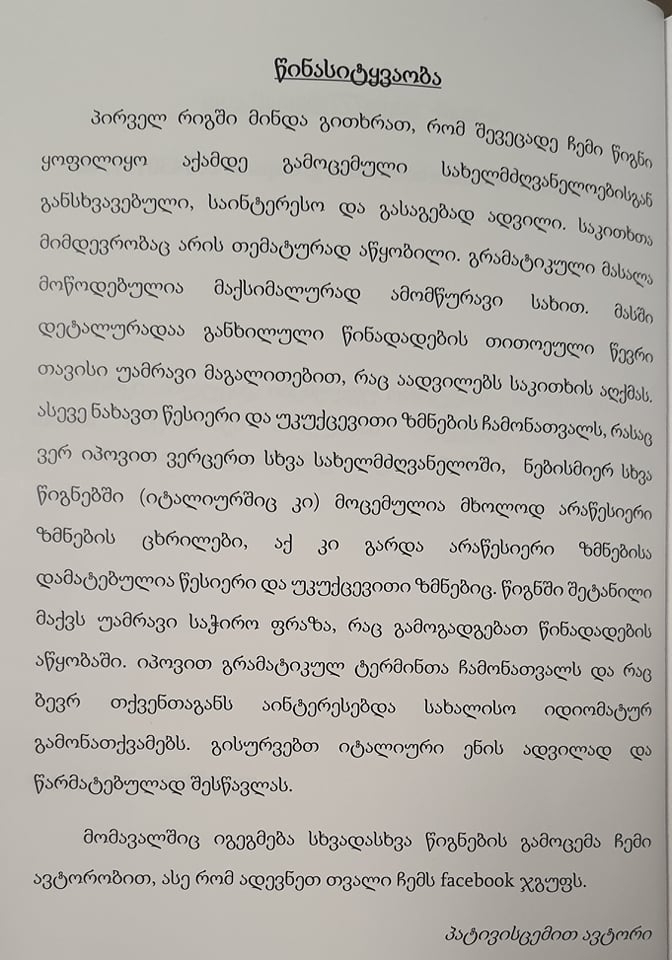 წინასიტყვაობა
პირველ რიგში მინდა გითხრათ, რომ შევეცადე ჩემი წიგნი
ყოფილიყო აქამდე გამოცემული სახელმძღვანელოებისგან
განსხვავებული, საინტერესო და გასაგებად ადვილი. საკითხთა
მიმდევრობაც არის თემატურად აწყობილი. გრამატიკული მასალა
მოწოდებულია მაქსიმალურად ამომწურავი სახით. მასში
დეტალურადაა განხილული წინადადების თითოეული წევრი
თავისი უამრავი მაგალითებით, რაც აადვილებს საკითხის აღქმას.
ასევე ნახავთ წესიერი და უკუქცევითი ზმნების ჩამონათვალს, რასაც
ვერ იპოვით ვერცერთ სხვა სახელმძღვანელოში, ნებისმიერ სხვა
წიგნებში (იტალიურშიც კი) მოცემულია მხოლოდ არაწესიერი
ზმნების ცხრილები, აქ კი გარდა არაწესიერი ზმნებისა
დამატებულია წესიერი და უკუქცევითი ზმნებიც. წიგნში შეტანილი
მაქვს უამრავი საჭირო ფრაზა, რაც გამოგადგებათ წინადადების
აწყობაში. იპოვით გრამატიკულ ტერმინთა ჩამონათვალს და რაც
ბევრ თქვენთაგანს აინტერესებდა სახალისო იდიომატურ
გამონათქვამებს. გისურვებთ იტალიური ენის ადვილად და
წარმატებულად შესწავლას.
მომავალშიც იგეგმება სხვადასხვა წიგნების გამოცემა ჩემი
ავტორობით, ასე რომ ადევნეთ თვალი ჩემს facebook ჯგუფს.
პატივისცემით ავტორი